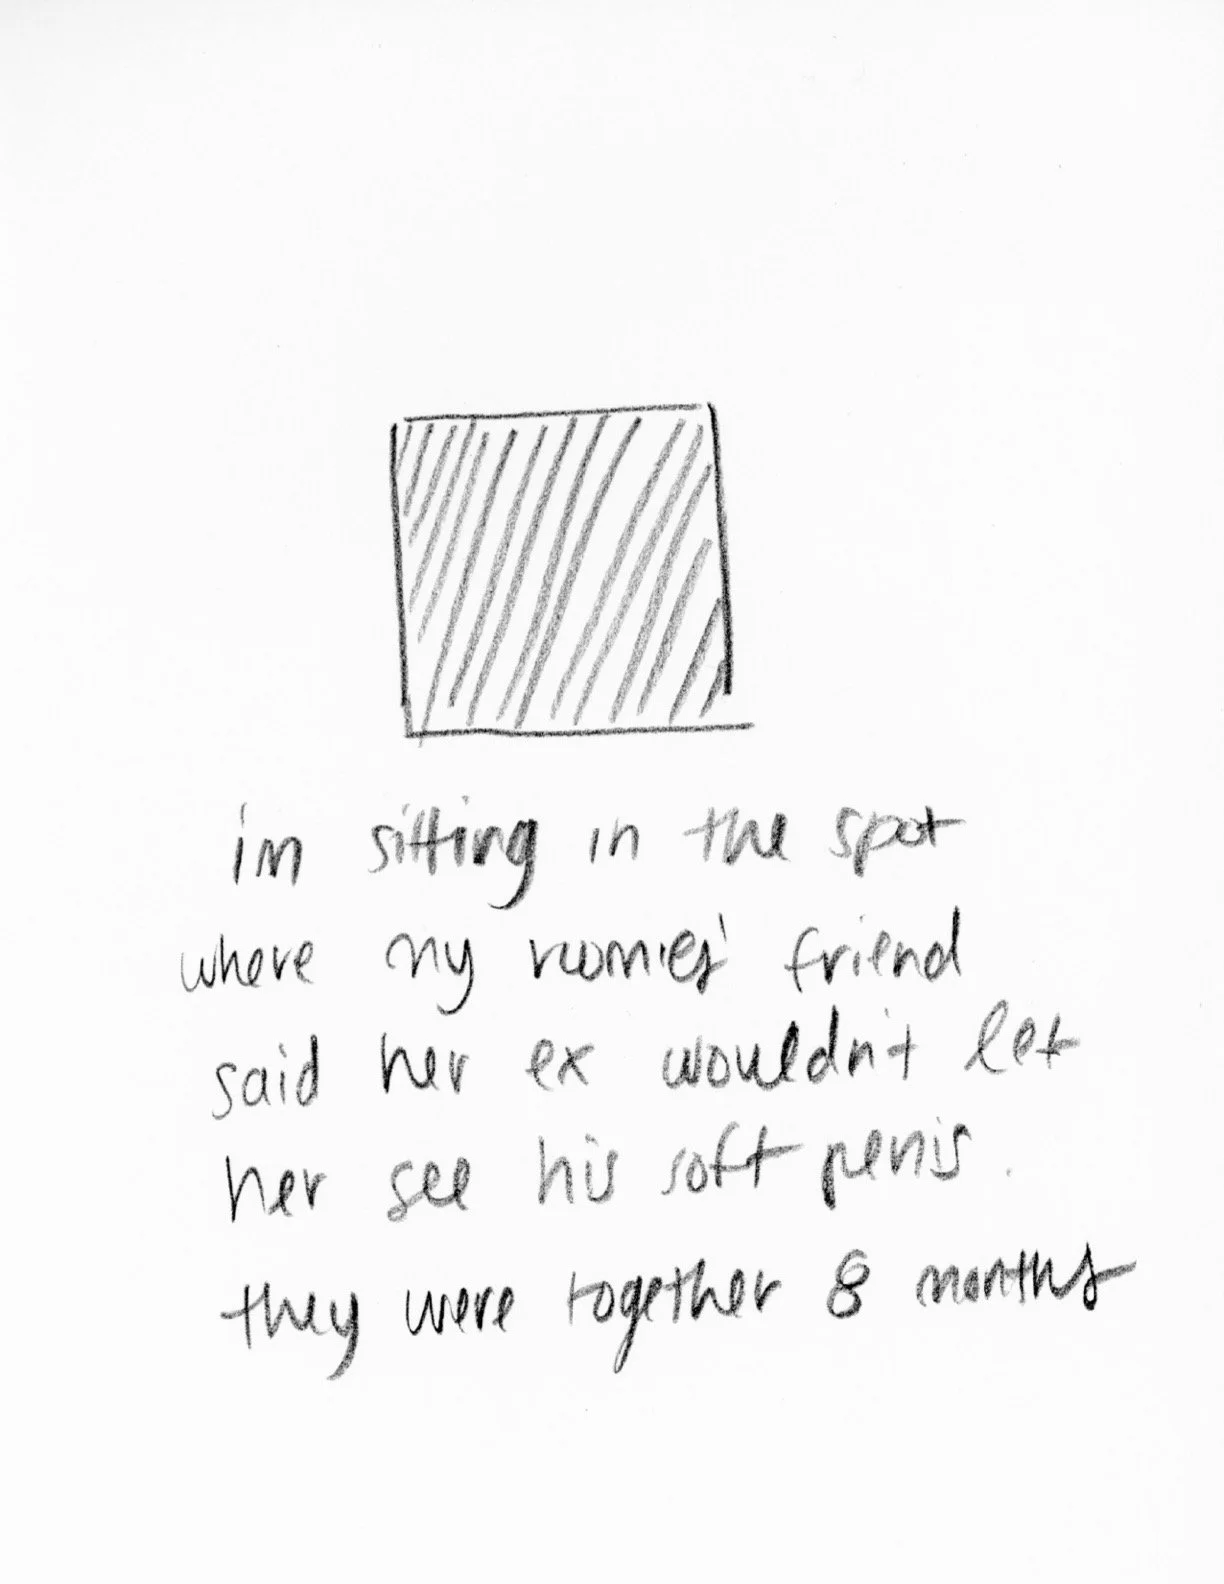 im sitting in the spot
where my roomies' friend
said her ex wouldn't let
her see his soft penis.
they were together 8 months